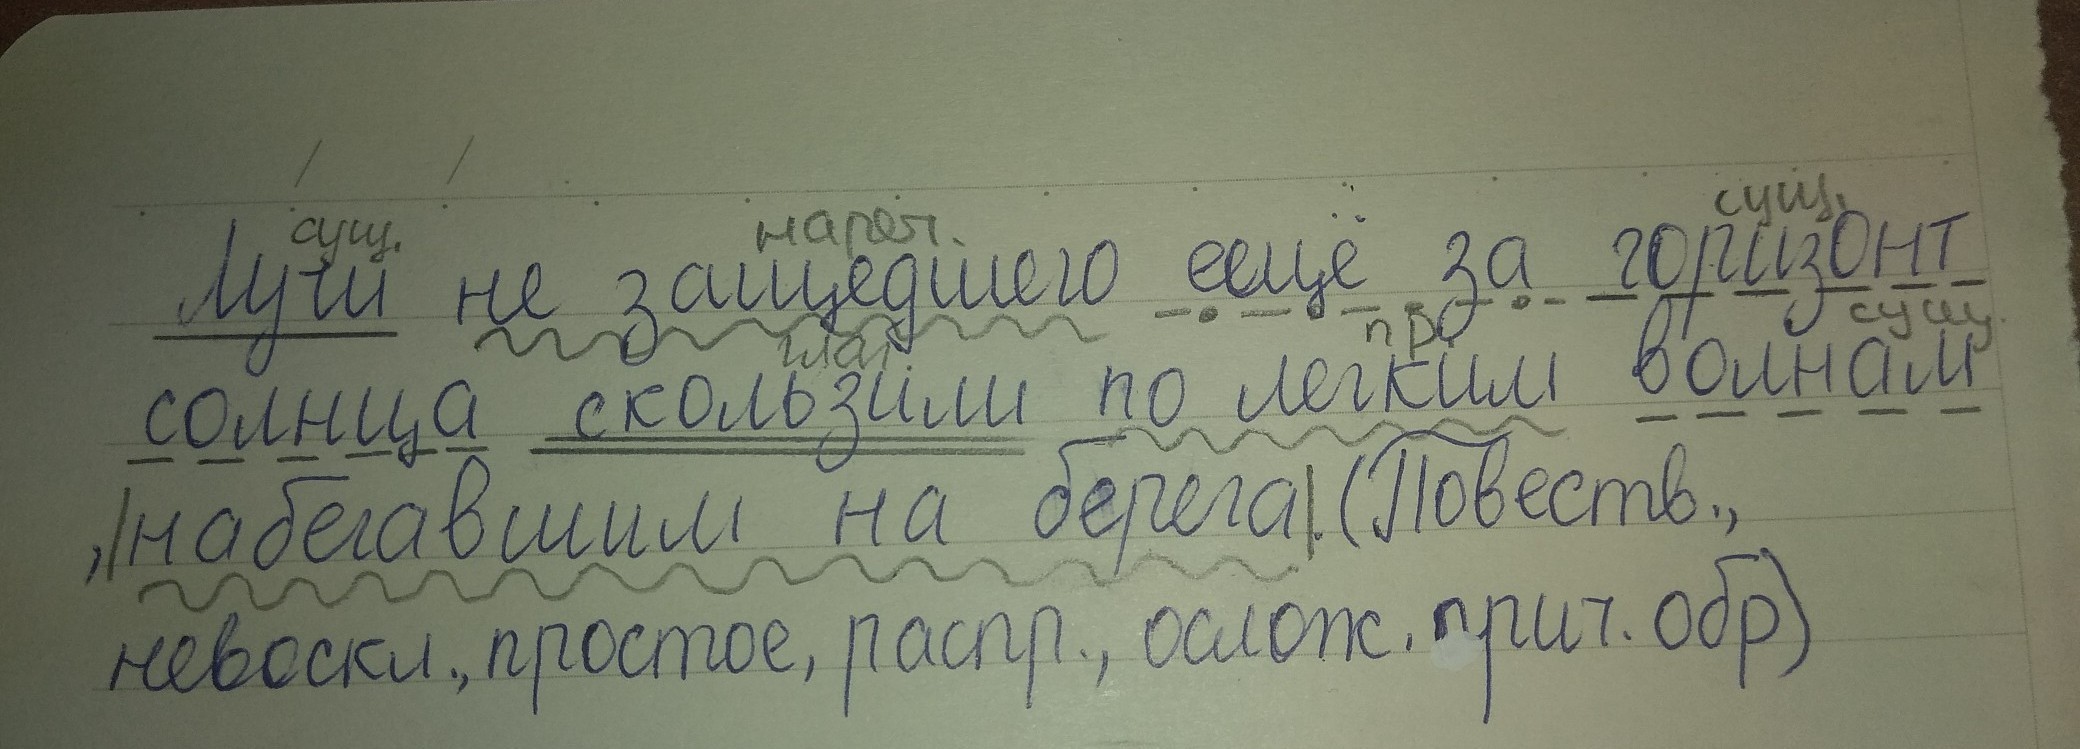 сущ. нареч. сущ.
Лучи не зашедшего еещё за горизонт
глаг пр. сущ.
солнца скользили по легким волнам
, |набегавшим на берега|. (Повеств.,
невоскл., простое, распр., ослож. прич. обр)